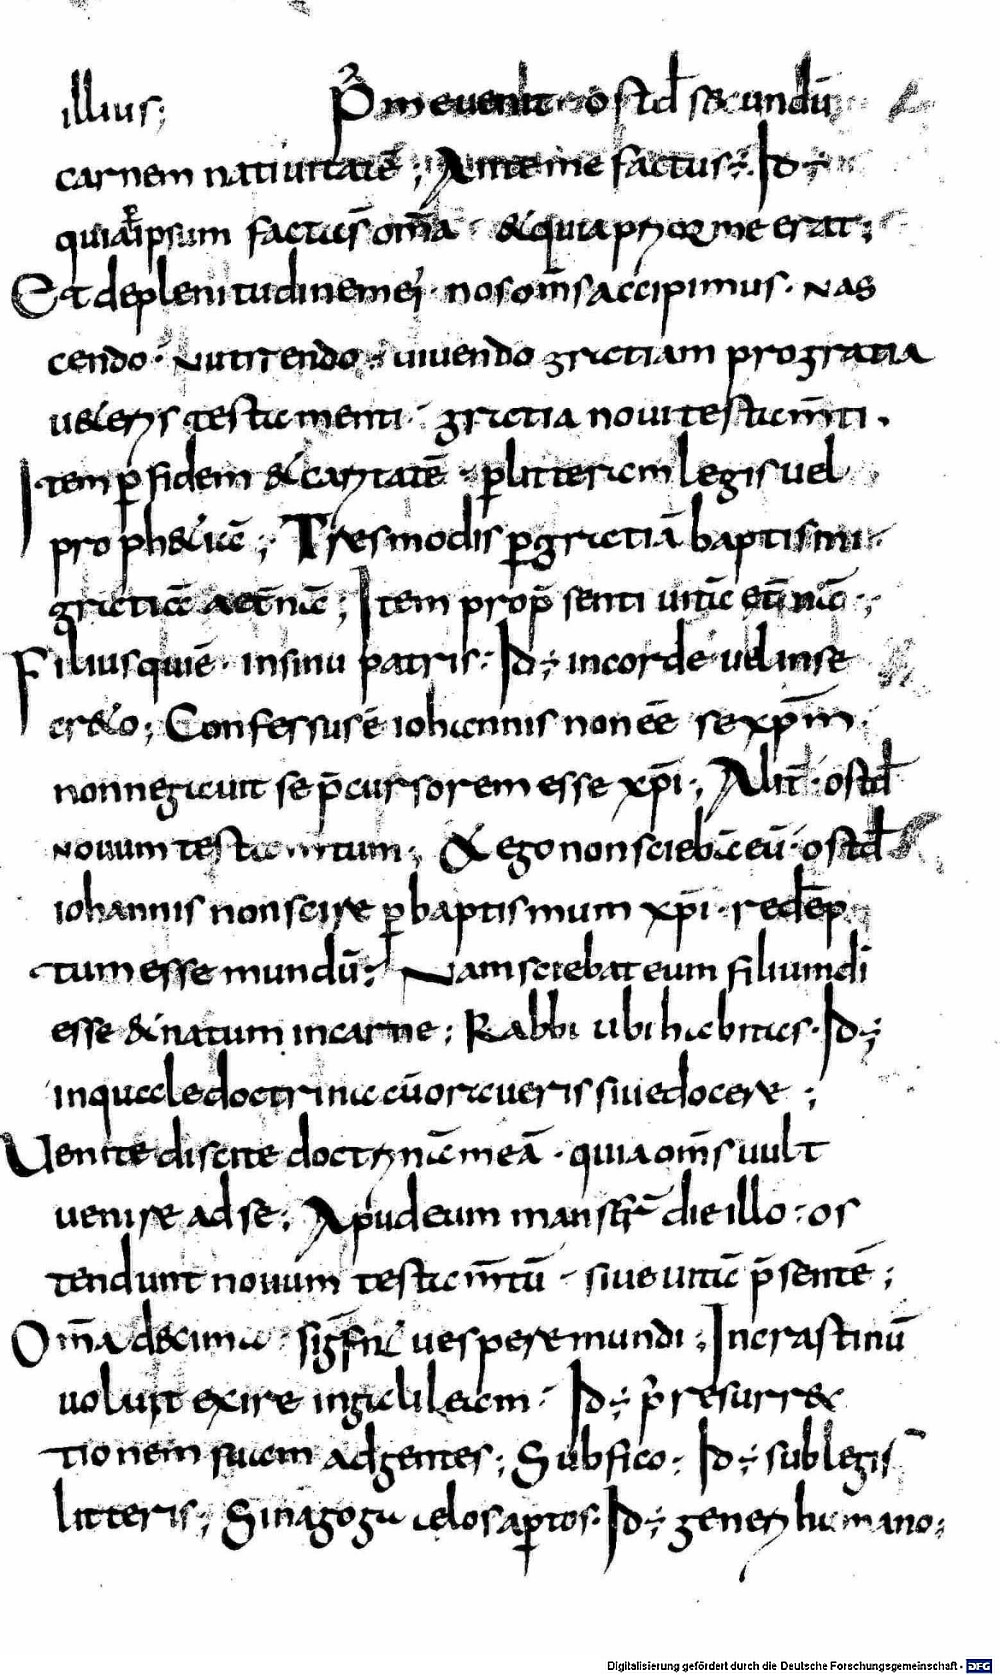 illius; P̄ me uenit · ostd̄ secundū
carnem natiuitatē; Ante me factus ÷ Id ÷
quia p̄ ipsum factus̄ om̄a · & quia prior me erat;
Et de plenitudine mei · nos om̄s accipimus · Nas
cendo · Nutriendo · uiuendo gratiam pro gratia
ueteris testamenti · gratia noui testam̄ti .
Item p̄ fidem & caritatē · p̄ litteram legis uel
prophetiā; Tres modis p̄ gratiā baptismi
gratiā aet̄nā; Item pro p̄senti uitā et̄nā ·;
Filius qui ē · in sinu patris · Id ÷ in corde uel in se
creto; Confessus ē iohannis non eē se xp̄m;
non negauit se p̄cursorem esse xp̄i; Alit̄ · ostd̄
Nouum testam̄tum; & ego non sciebā eū · ostd̄
iohannis non scire p̄ baptismum xp̄i · redēp
tum esse mundū; Nam sciebat eum filium dī
esse & natum in carne; Rabbi ubi habitas · Id ÷
in quale doctrina cū oraueris siue docere;
Uenite discite doctrinā meā · quia om̄s uult
uenire ad se; Apud eum manser̄ die illo · os
tendunt nouum testam̄tū · siue uitā p̄sentē;
Om̄a decima · sigf̄ni uespere mundi; In crastinū
uoluit exire in galileam · Id ÷ p̄ resurrec
tionem suam ad gentes; Sub fico · Id ÷ sub legis
litteris; Sinagoga celos ap̄tos · Id ÷ generi humano;
Digitalisierung gefördert durch die Deutsche Forschungsgemeinschaft - DFG